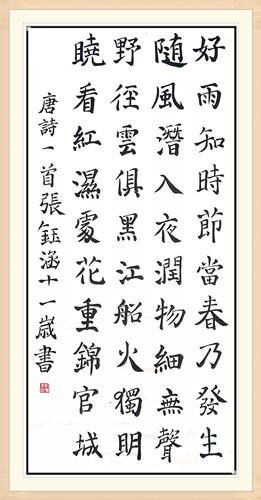 好雨知時節當春乃發生
随風潛入夜潤物細無聲
野徑雲俱黑江船火獨明
曉看紅濕處花重錦官城
唐詩一首張鈺涵十一歲書